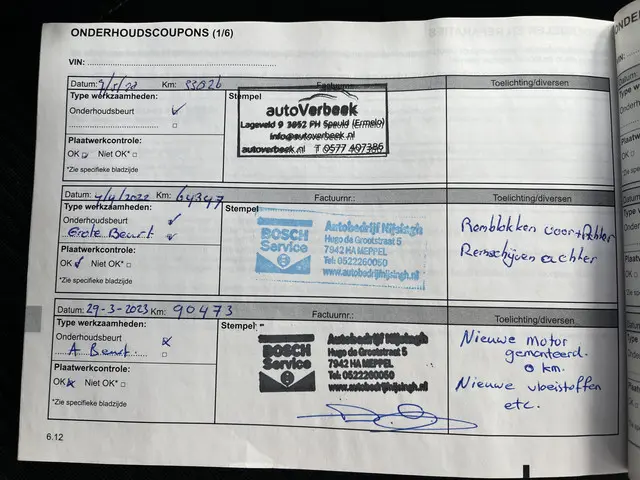 ONDERHOUDSCOUPONS (1/6)
VIN:
Datum: 9/5/20 Km: 55026 Factuurnr.: Toelichting/diversen
Type werkzaamheden: Stempel
Onderhoudsbeurt
autoVerbeek
Lageveld 9 3852 PH Speuld (Ermelo)
info@autoverbeek.nl
autoverbeek.nl T 0577 407386
Plaatwerkcontrole:
OK Niet OK*
*Zie specifieke bladzijde
Datum: 4/4/2022 Km: 64347 Factuurnr.: Toelichting/diversen
Type werkzaamheden: Stempel
Onderhoudsbeurt
Grote Beurt
Plaatwerkcontrole:
OK Niet OK*
*Zie specifieke bladzijde
BOSCH
Service
Autobedrijf Nijsingh
Hugo de Grootstraat 5
7942 HA MEPPEL
Tel: 0522260050
www.autobedrijfnijsingh.nl
Remblokken voor+Achter
Remschijven achter
Datum: 29-3-2023 Km: 90473 Factuurnr.: Toelichting/diversen
Type werkzaamheden: Stempel
Onderhoudsbeurt
A Beurt
Plaatwerkcontrole:
OK Niet OK*
*Zie specifieke bladzijde
BOSCH
Service
Autobedrijf Nijsingh
Hugo de Grootstraat 5
7942 HA MEPPEL
Tel: 0522260050
www.autobedrijfnijsingh.nl
Nieuwe motor
gemonteerd.
0 km.
Nieuwe vloeistoffen
etc.
6.12
ONDERHO
VIN:
Datum: